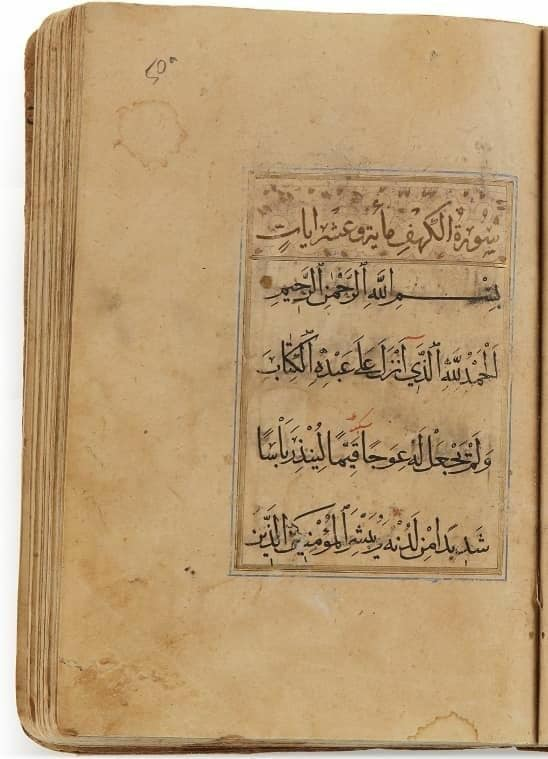 سُورَةُ الكَهْفِ مائة وعشر ايات
بِسْمِ اللَّهِ الرَّحْمٰنِ الرَّحِيمِ
اَلْحَمْدُ لِلَّهِ الَّذِي اَنْزَلَ عَلَى عَبْدِهِ الْكِتَابَ
وَلَمْ يَجْعَلْ لَهُ عِوَجًا قَيِّمًا لِيُنْذِرَ بَأْسًا
شَدِيدًا مِنْ لَدُنْهُ وَيُبَشِّرَ الْمُؤْمِنِينَ الَّذِينَ